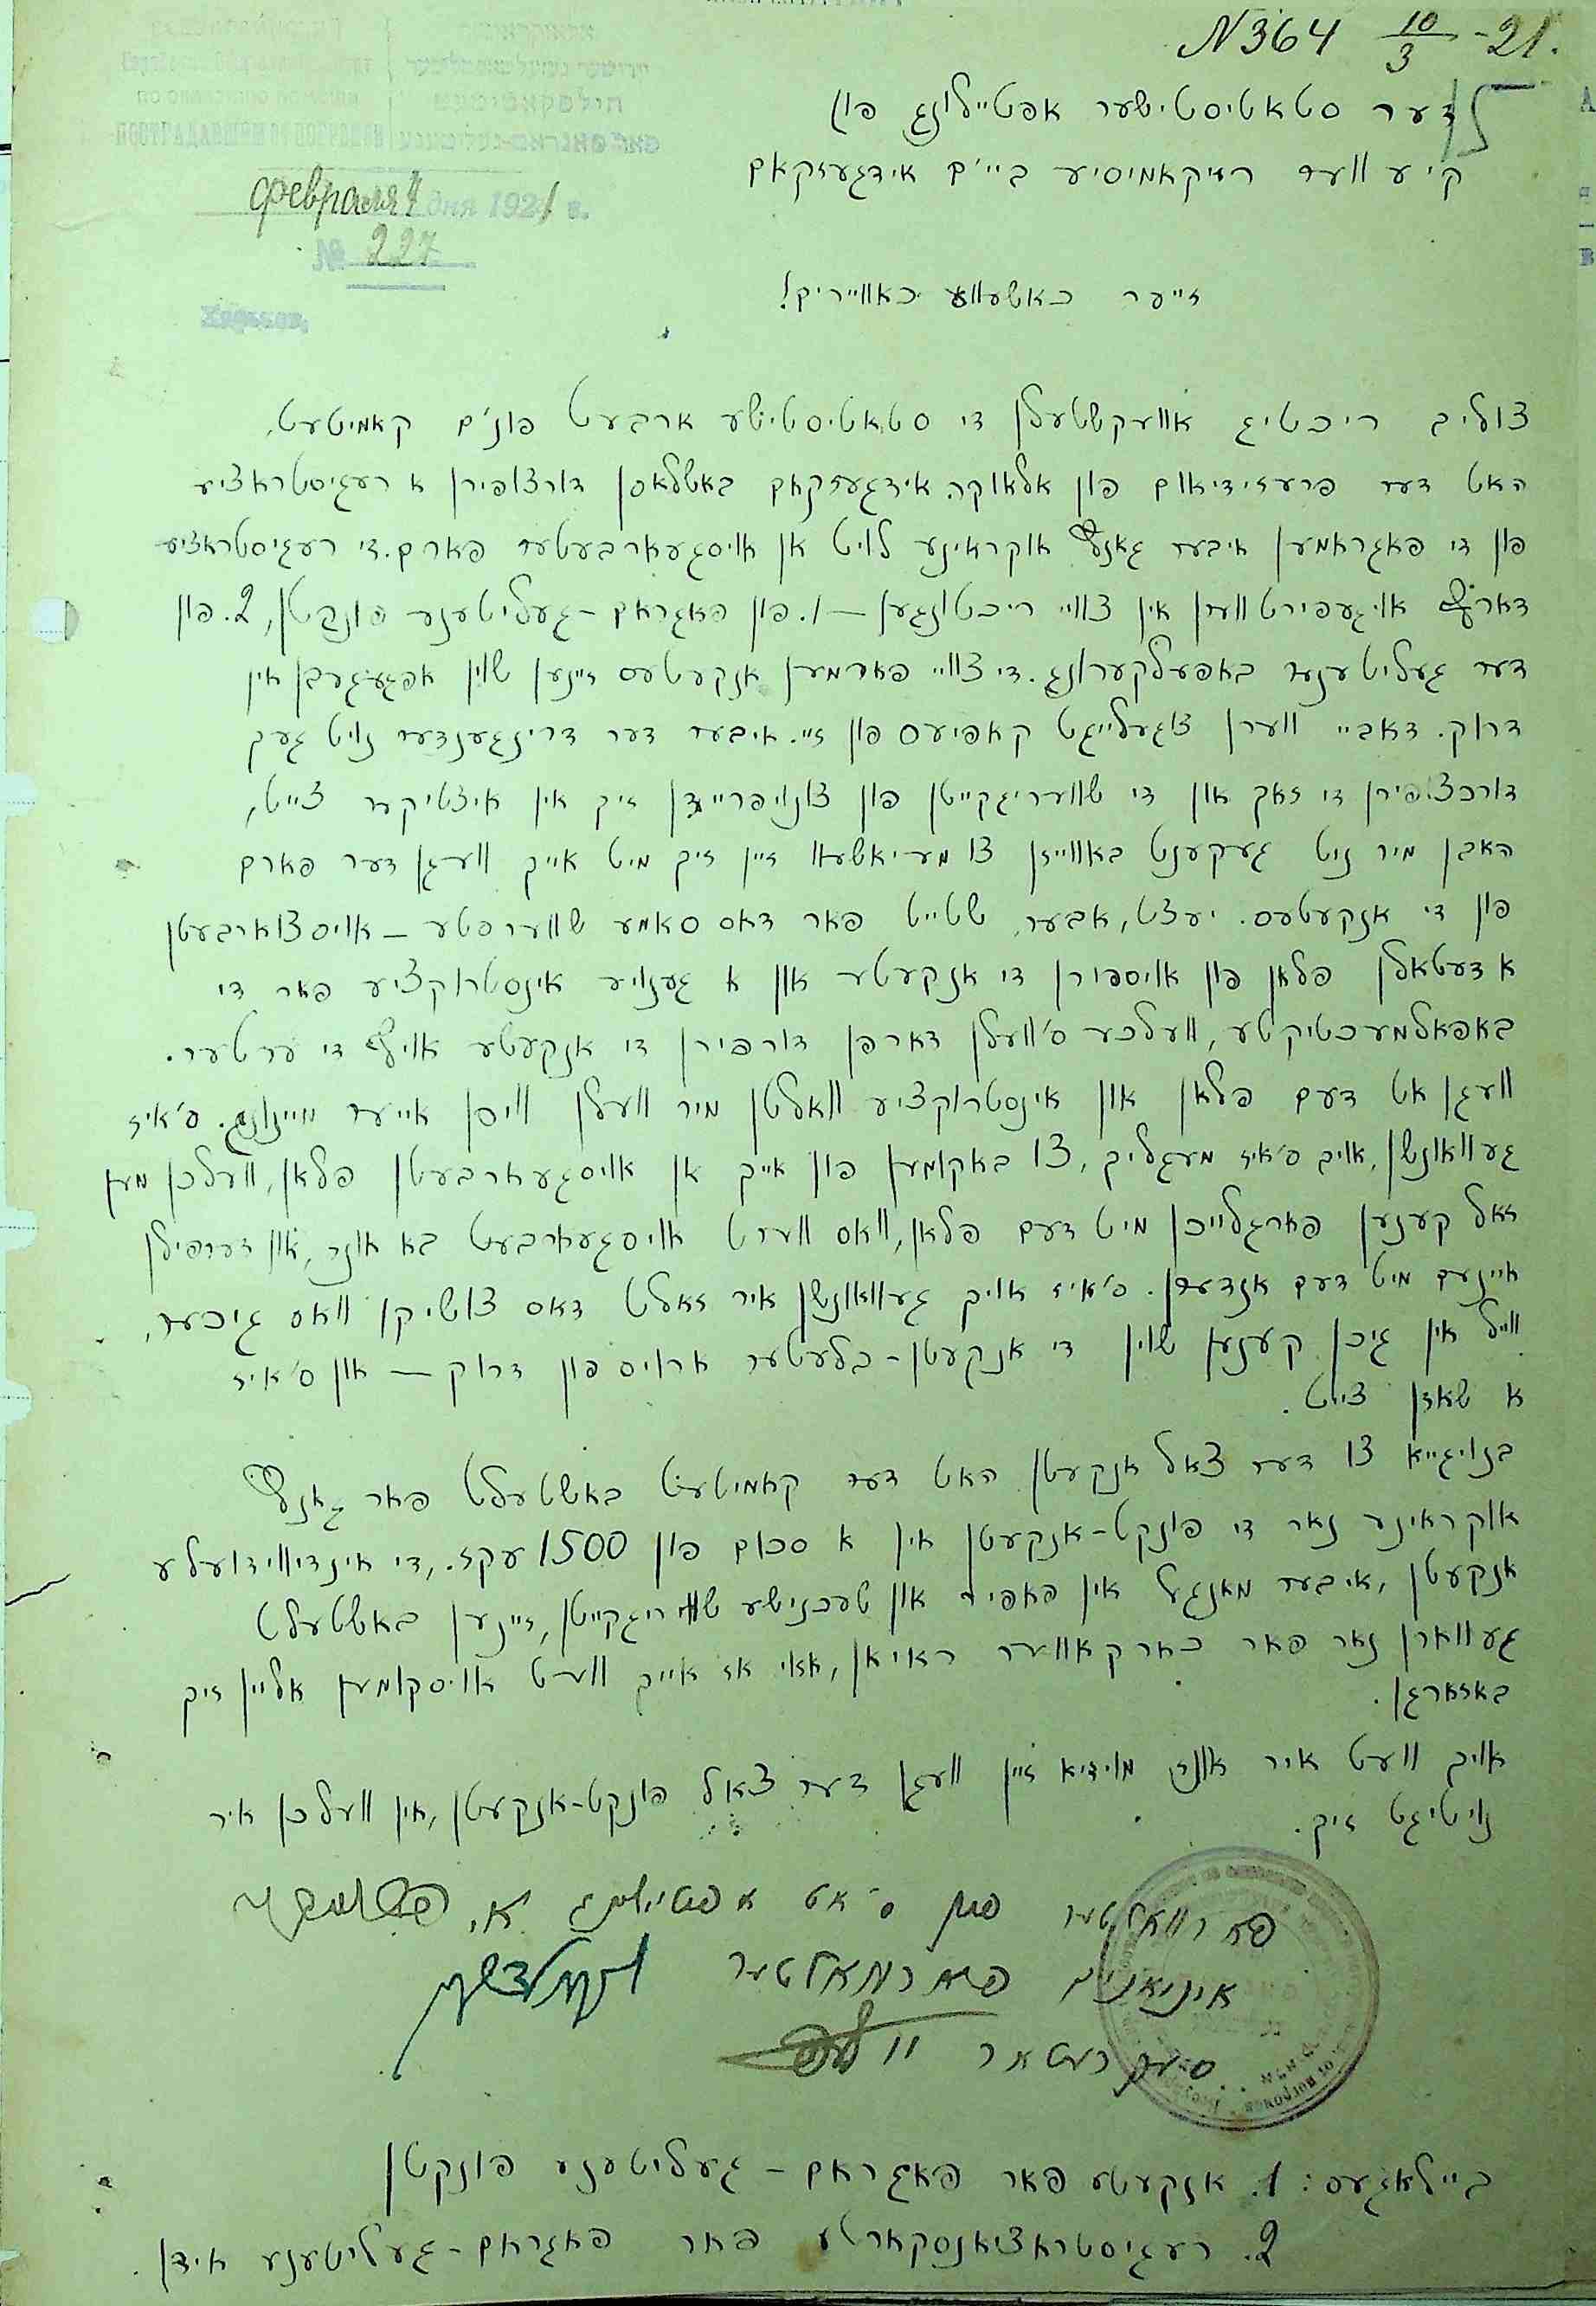 N364 10/3 -21.
דער סטאטיסטישער אפטיילונג פון
קיעווער רייקאמיסיע ביי'ם אידגעזקאם
февраля 4 дня 1921 г.
№ 227
Харьков,
זייער כאשעווע כאוויירים!
צוליב ריכטיג אוועקשטעלן די סטאטיסטישע ארבעט פונ'ם קאמיטעט,
האט דער פרעזידיאום פון אלאוקר. אידגעזקאם באשלאסן דורכצופירן א רעגיסטראציע
פון די פאגראמען איבער גאנץ אוקראינע לויט אן אויסגעארבעטער פארם. די רעגיסטראציע
דארף אויגעפירט ווערן אין צוויי ריכטונגען — 1. פון פאגראם-געליטענע פונקטן, 2. פון
דער געליטענער באפעלקערונג. די צוויי פארמען אנקעטעס זיינען שוין אפגעגעבן אין
דרוק. דאביי ווערן צוגעלייגט קאפיעס פון זיי. איבער דער דרינגענדער נויט גיך
דורכצופירן די זאך און די שוועריגקייטן פון צונויפריידן זיך אין איצטיקער צייט,
האבן מיר ניט געקענט באווייזן צו מעיאשעוו זיין זיך מיט אייך וועגן דער פארם
פון די אנקעטעס. יעצט, אבער, שטייט פאר דאס סאמע שווערסטע — אויסצוארבעטן
א דעטאלן פלאן פון אויספורן די אנקעטע און א גענויע אינסטרוקציע פאר די
באפאלמעכטיקטע, וועלכע ס'וועלן דארפן דורכפירן די אנקעטע אויף די ערטער.
וועגן אט דעם פלאן און אינסטרוקציע וואלטן מיר וועלן וויסן אייער מיינונג. ס'איז
געוואונשן, אויב ס'איז מעגליך, צו באקומען פון אייך אן אויסגעארבעטן פלאן, וועלכן מען
זאל קענען פארגלייכן מיט דעם פלאן, וואס ווערט אויסגעארבעט בא אונז, און דערפילן
איינעם מיט דעם אנדערן. ס'איז אויך געוואונשן איר זאלט דאס צושיקן וואס גיכער,
ווייל אין גיכן קענען שוין די אנקעטן-בלעטער ארויס פון דרוק — און ס'איז
א שאדן צייט.
בנויגייע צו דער צאל אנקעטן האט דער קאמיטעט באשטעלט פאר גאנץ
אוקראינע נאר די פונקט-אנקעטן אין א סכום פון 1500 עקז., די אינדיווידועלע
אנקעטן, איבער מאנגל אין פאפיר און טעכנישע שוועריגקייטן, זיינען באשטעלט
געווארן נאר פאר כארקאווער ראיאן, אזוי אז אייך וועט אויסקומען אליין זיך
באזארגן.
אויב וועט איר אונז מוידיע זיין וועגן דער צאל פונקט-אנקעטן, אין וועלכן איר
נויטיגט זיך.
פארוואלטער פון סטאט אפטיילונג א.
פארוואלטער
סעקרעטאר
ביילאגעס: 1. אנקעטע פאר פאגראם-געליטענע פונקטן
2. רעגיסטראציאנסקארטע פאר פאגראם-געליטענע אידן.